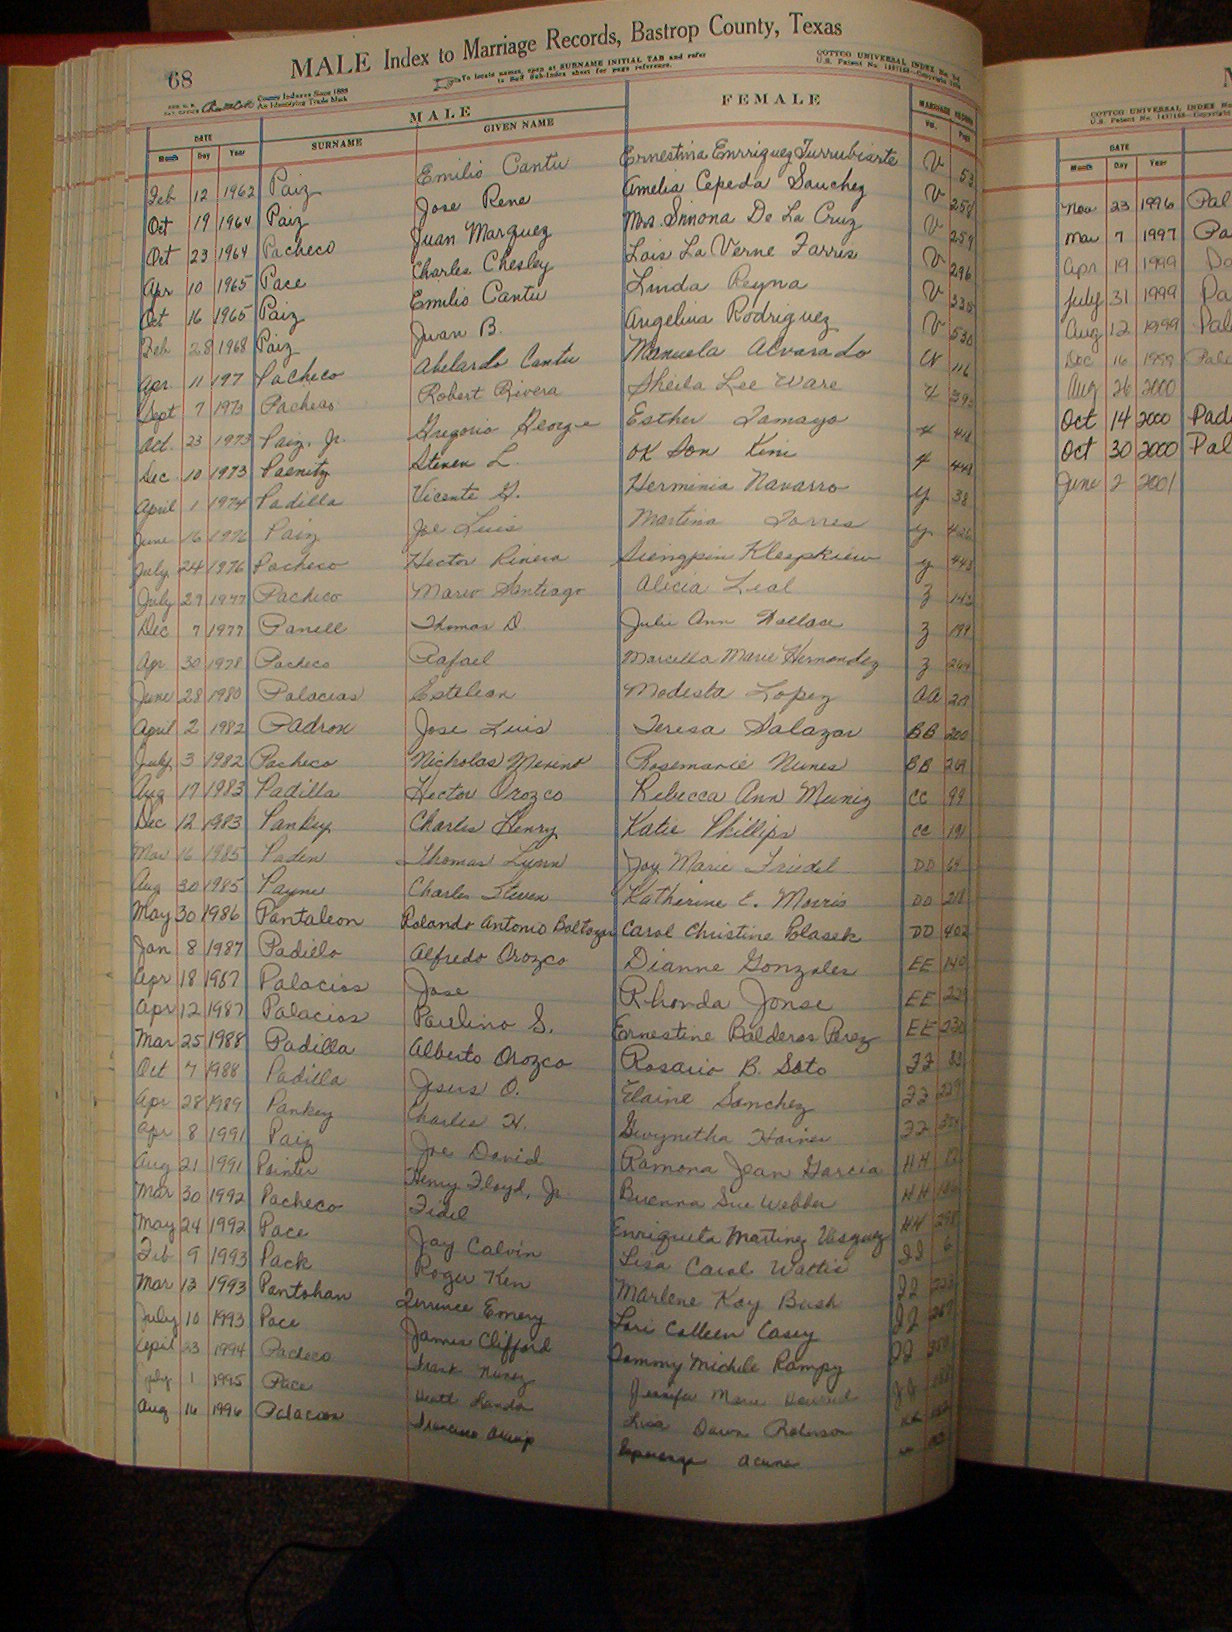 68
MALE Index to Marriage Records, Bastrop County, Texas
To locate names, open at SURNAME INITIAL TAB and refer
to Sub-Index sheet for page reference.
COTTCO UNIVERSAL INDEX
U.S. Patent No.
County Indexes Since 1888
An Identifying Trade Mark
MALE FEMALE
DATE SURNAME GIVEN NAME MARRIAGE RECORD
Month Day Year Vol. Page
Feb 12 1962 Paiz Emilio Cantu Ernestina Enrriquez Turrubiarte V 53
Oct 19 1964 Paiz Jose Rene Amelia Cepeda Sanchez V 258
Oct 23 1964 Pacheco Juan Marquez Mrs. Simona De La Cruz V 259
Apr 10 1965 Pace Charles Chesley Lois La Verne Farris V 296
Oct 16 1965 Paiz Emilio Cantu Linda Reyna V 335
Feb 28 1968 Paiz Juan B. Angelina Rodriguez V 530
Apr. 11 197 Pacheco Abelardo Cantu Manuela Alvarado 116
Sept 7 1973 Pacheco Robert Rivera Sheila Lee Ware
Oct. 23 1973 Paiz, Jr. Gregorio George Esther Tamayo
Dec 10 1973 Paenitz Steven L. OK Son Kim
April 1 1974 Padilla Vicente G. Herminia Navarro y 38
June 16 1976 Paiz Joe Luis Martina Torres y 426
July 24 1976 Pacheco Hector Rivera y 443
July 29 1977 Pacheco Mario Santiago Alicia Leal z 143
Dec 7 1977 Panell Thomas D. Julie Ann Wallace z 199
Apr 30 1978 Pacheco Rafael Marcella Marie Hernandez z 264
June 28 1980 Palacias Esteban Modesta Lopez AA
April 2 1982 Padron Jose Luis Teresa Salazar BB 200
July 3 1982 Pacheco Nicholas Merino Rosemarie Nunes BB 269
Aug 17 1983 Padilla Hector Orozco Rebecca Ann Muniz CC 99
Dec 12 1983 Pankey Charles Henry Katie Phillips CC 191
Mar 16 1985 Paden Thomas Lynn Joy Marie Friedel DD 64
Aug 30 1985 Payne Charles Steven Katherine E. Morris DD 218
May 30 1986 Pantaleon Rolando Antonio Baltazar Carol Christine Polasek DD 402
Jan 8 1987 Padilla Alfredo Orozco Dianne Gonzales EE 140
Apr 18 1987 Palacios Jose Rhonda Jonse EE
Apr 12 1987 Palacios Paulino S. Ernestine Balderas Perez EE 230
Mar 25 1988 Padilla Alberto Orozco Rosario B. Soto FF 83
Oct 7 1988 Padilla Jesus O. Elaine Sanchez FF 229
Apr 28 1989 Pankey Charles H. Gwynetha Haines FF
Apr 8 1991 Paiz Joe David Ramona Jean Garcia HH
Aug 21 1991 Painter Henry Floyd, Jr Buenna Sue Webber HH
Mar 30 1992 Pacheco Fidel Enriqueta Martinez Vasquez HH 298
May 24 1992 Pace Jay Calvin Lisa Carol Wattis II 6
Feb 9 1993 Pack Roger Ken Marlene Kay Bush II
Mar 13 1993 Pantohan Terrence Emery Lori Colleen Casey II 267
July 10 1993 Pace James Clifford Tammy Michele Rampy II
April 23 1994 Pacheco Frank Nunez Jennifer Marie
July 1 1995 Pace Heath Landon Lisa Dawn Roberson
Aug 16 1996 Palacios Francisco Esperanza Acuna
COTTCO UNIVERSAL INDEX
U.S. Patent No.
DATE
Month Day Year
Nov 23 1996 Pal
Mar 7 1997 Pa
Apr 19 1999
July 31 1999 Pa
Aug 12 1999 Pal
Dec 16 1999 Pala
Aug 26 2000
Oct 14 2000 Padi
Oct 30 2000 Pal
June 2 2001